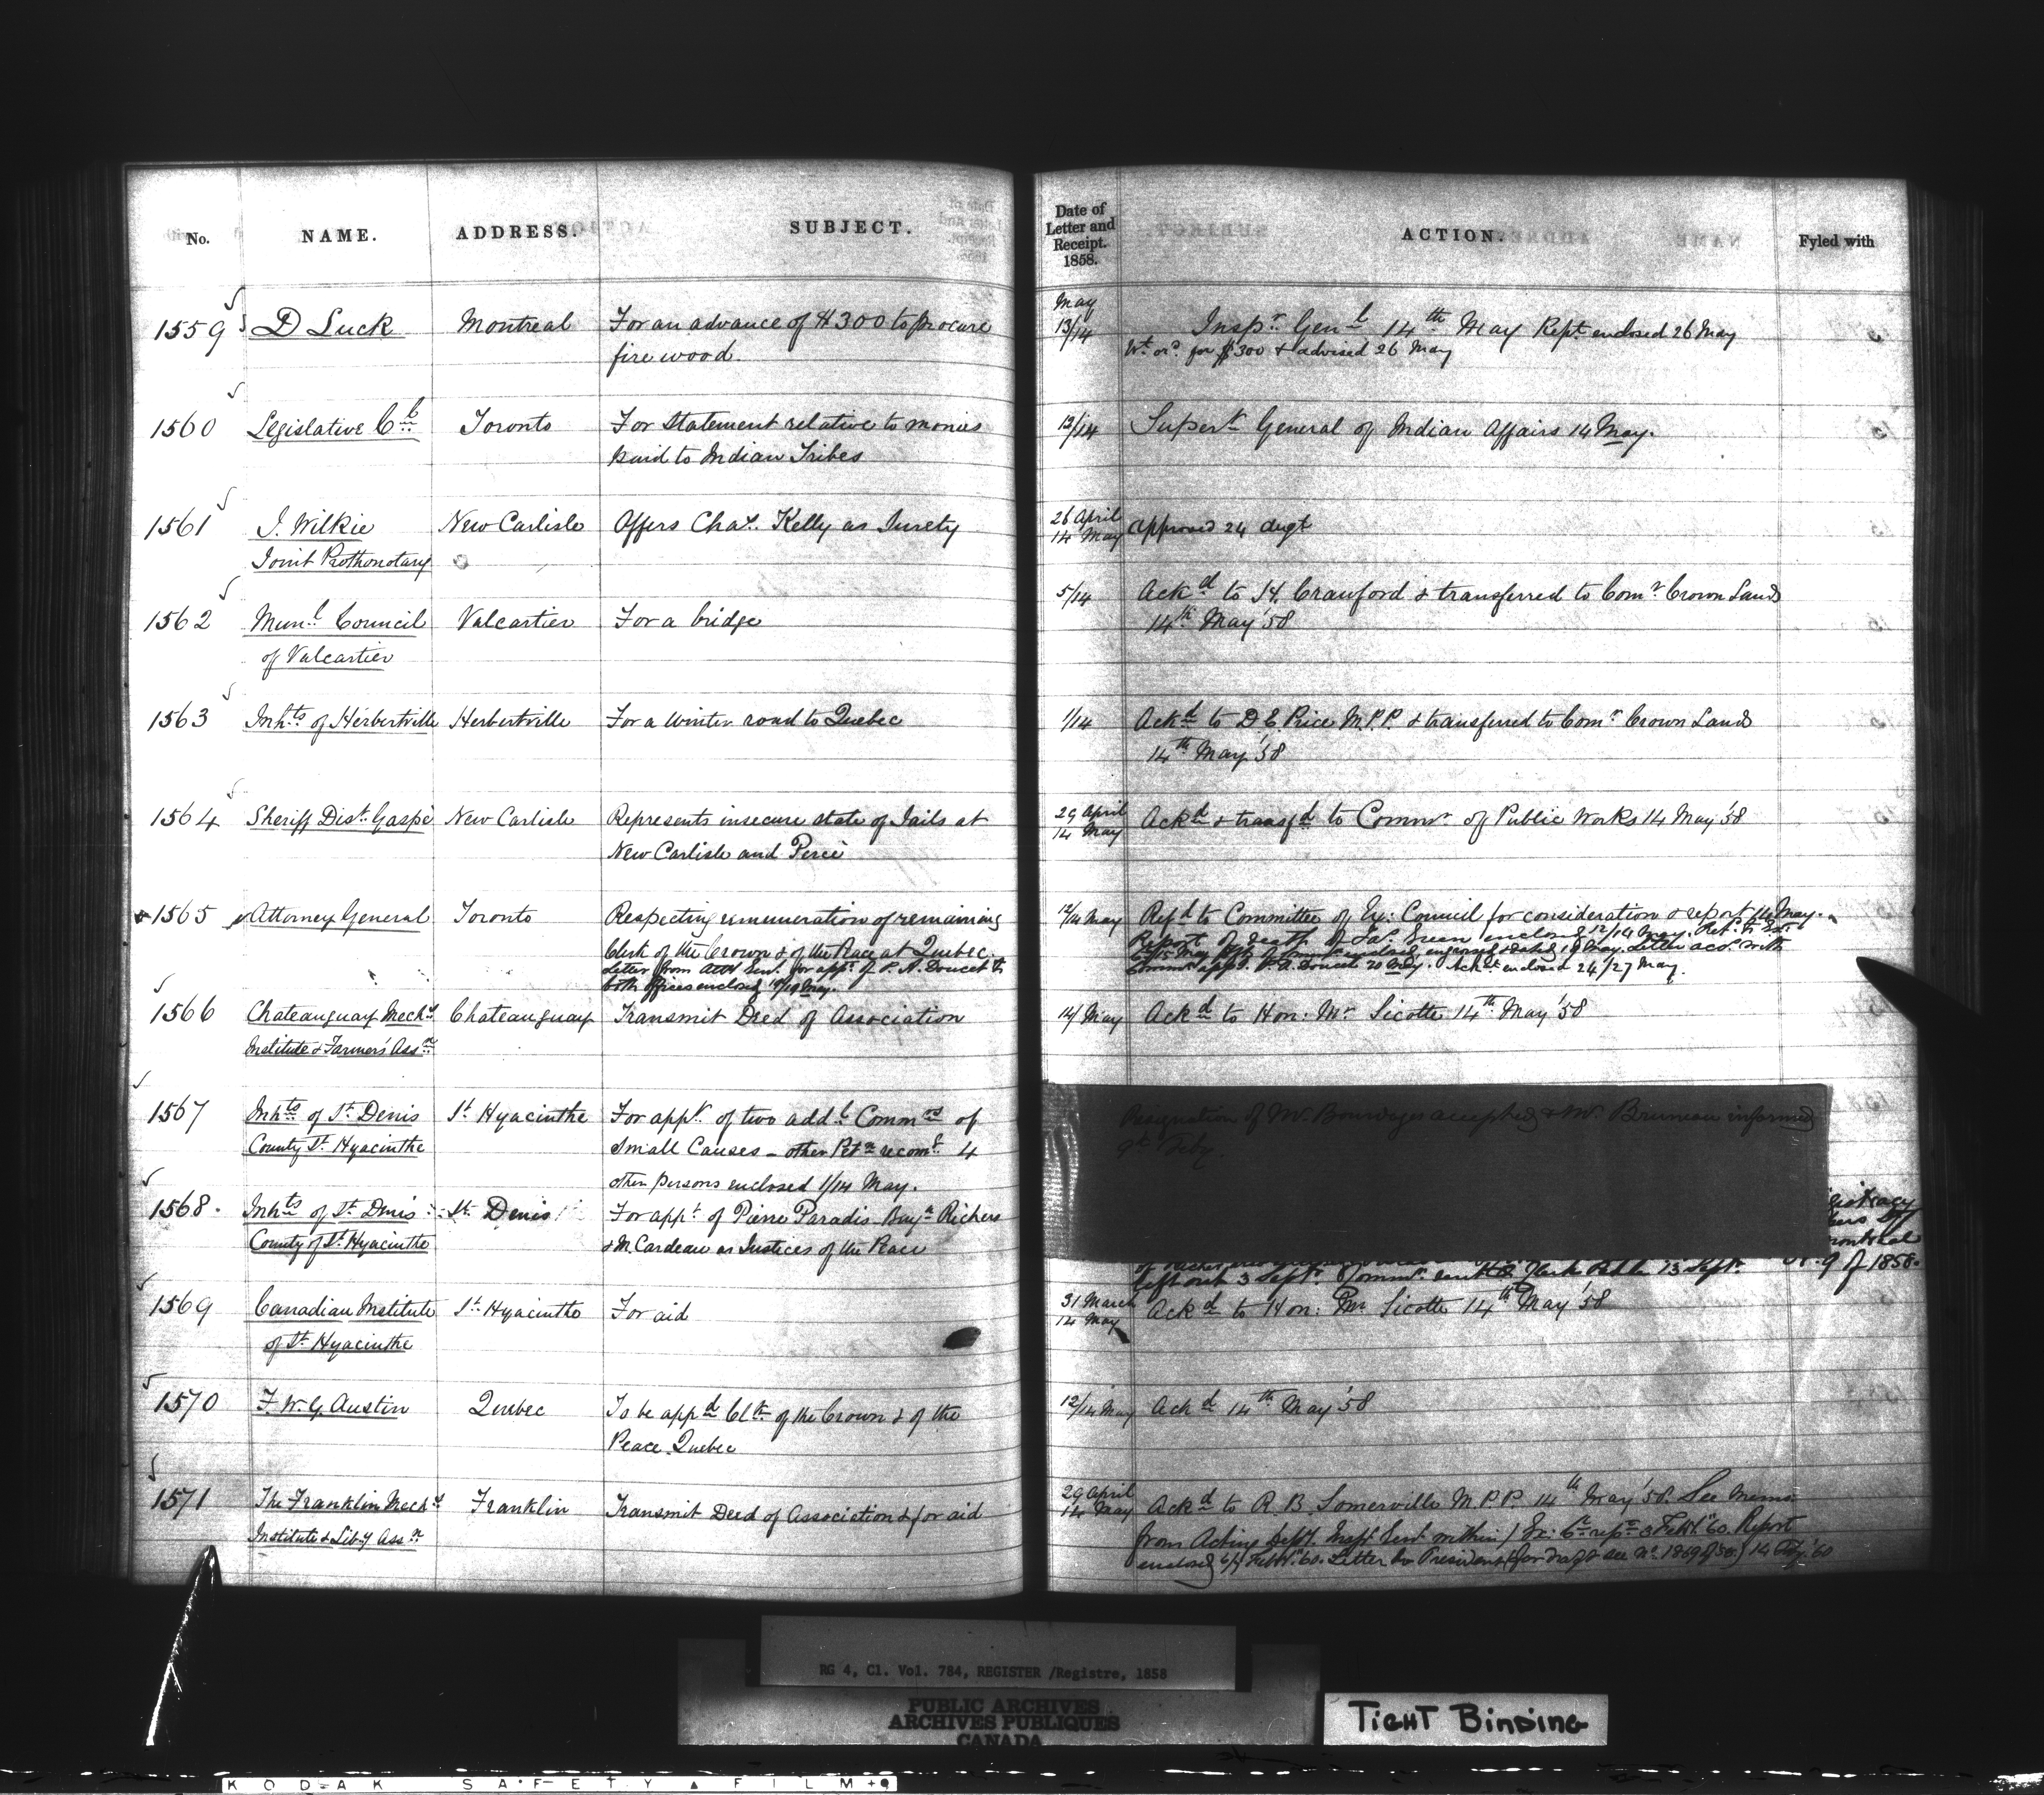 No. NAME. ADDRESS. SUBJECT.
1559 D Luck Montreal For an advance of $300 to procure
fire wood.
1560 Legislative Cl Toronto For Statement relative to monies
paid to Indian Tribes
1561 J. Wilkie New Carlisle Offers Chas. Kelly as Surety
Joint Prothonotary
1562 Munl Council Valcartier For a bridge
of Valcartier
1563 Inhts of Herbertville Herbertville For a winter road to Quebec
1564 Sheriff Dist. Gaspé New Carlisle Represents insecure state of Jails at
New Carlisle and Percé
1565 Attorney General Toronto Respecting remuneration of remaining
Clerk of the Crown & of the Peace at Quebec.
Letter from Atty Genl. for appt. of P. A. Doucet to
both offices enclosed 18/19 May.
1566 Chateauguay Mechs Chateauguay Transmit Deed of Association
Institute & Farmers' Assn
1567 Inhts of St. Denis St. Hyacinthe For appt. of two addl Commrs of
County St. Hyacinthe Small Causes - other Petn recomg 4
other persons enclosed 1/14 May.
1568. Inhts of St. Denis St. Denis For appt. of Pierre Paradis Richers
County of St. Hyacinthe & M. Cardeau as Justices of the Peace
1569 Canadian Institute St. Hyacinthe For aid
of St. Hyacinthe
1570 F. W. G. Austin Quebec To be appd Clk of the Crown & of the
Peace Quebec
1571 The Franklin Mechs Franklin Transmit Deed of Association & for aid
Institute & Liby Assn
Date of
Letter and
Receipt.
1858.
ACTION. Fyled with
May
13/14 Inspr Genl 14th May Rept enclosed 26 May
Wt. ord. for $300 & advised 26 May
12/14 Supert General of Indian Affairs 14 May.
26 April
14 May Approved 24 Augt
5/14 Ackd to H. Crawford & transferred to Comr Crown Lands
14th May '58
1/14 Ackd to D E Price M.P.P. & transferred to Comr Crown Lands
14th May '58
29 April
14 May Ackd & transfd to Commr of Public Works 14 May '58
12/14 May Refd to Committee of Ex: Council for consideration & report 14 May.
Report of death of Jas. Green enclosed 12/14 May.
Letter acct. with
appt. P. A. Doucet 20 May. enclosed 24/27 May.
14 May Ackd to Hon: Mr Sicotte 14th May '58
Resignation of Mr. Bourdages accepted & Mr. Bruneau informed
9th Feby.
left out 3 Sept. 13 Sept. 9 of 1858.
31 March
14 May Ackd to Hon: Mr Sicotte 14th May '58
12/14 May Ackd 14th May '58
29 April
14 May Ackd to R. B. Somerville M.P.P. 14th May '58. See Memo.
from Acting Dept. within Ex: Cl rept 3 Feby '60. Report
enclosed 6/7 Feby '60. Letter to President (for draft see No. 1869 of 58.) 14 Feby '60
RG 4, C1. Vol. 784, REGISTER /Registre, 1858
PUBLIC ARCHIVES
ARCHIVES PUBLIQUES
CANADA
TIGHT BINDING
KODAK SAFETY FILM